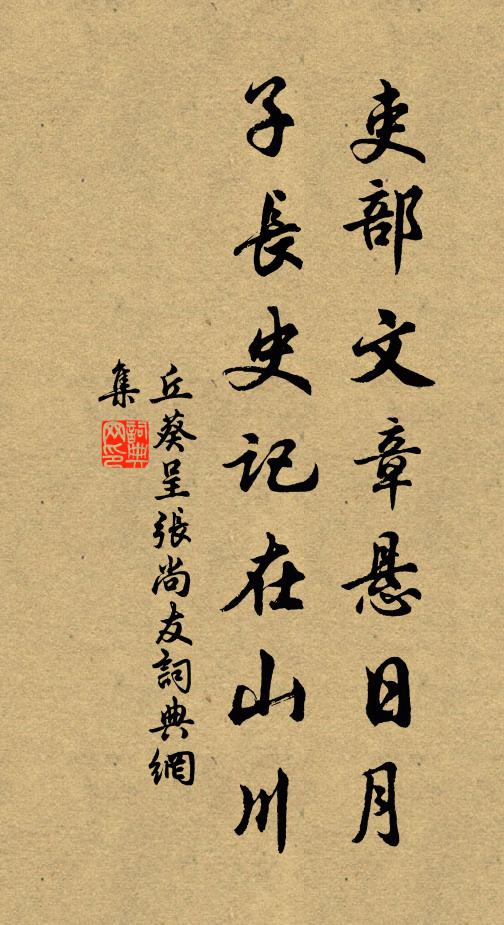 吏部文章悬日月
子長史記在山川
丘葵呈張尚友詞典網
集
詞典网印